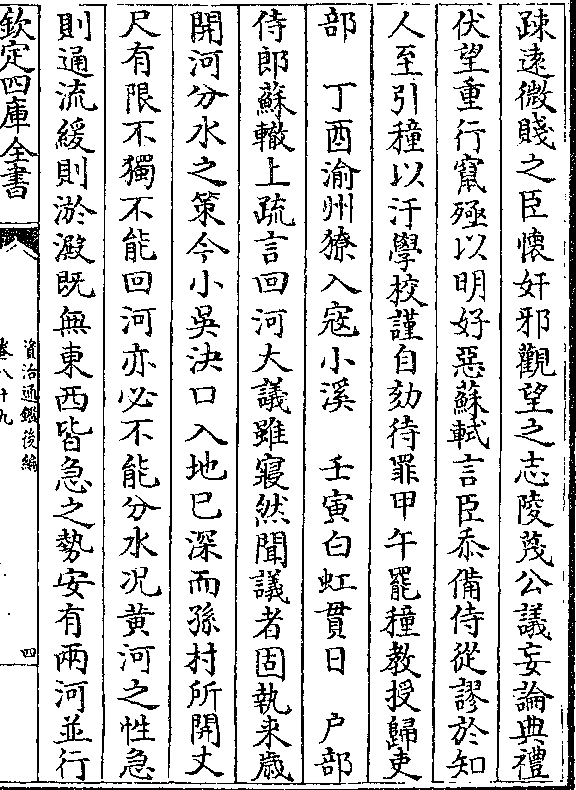 踈逺微賤之臣懷奸邪觀望之志陵蔑公議妄論典禮
伏望重行竄殛以明好惡蘇軾言臣忝備侍從謬於知
人至引穜以汙學校謹自劾待罪甲午罷穜教授歸吏
部　丁酉渝州獠入寇小溪　壬寅白虹貫日　户部
侍郎蘇轍上疏言回河大議雖寢然聞議者固執来歳
開河分水之策今小吳決口入地已深而孫村所開丈
尺有限不獨不能回河亦必不能分水况黄河之性急
則通流緩則淤澱既無東西皆急之勢安有兩河並行
欽定四庫全書
資治通鑑後編
卷八十九
四